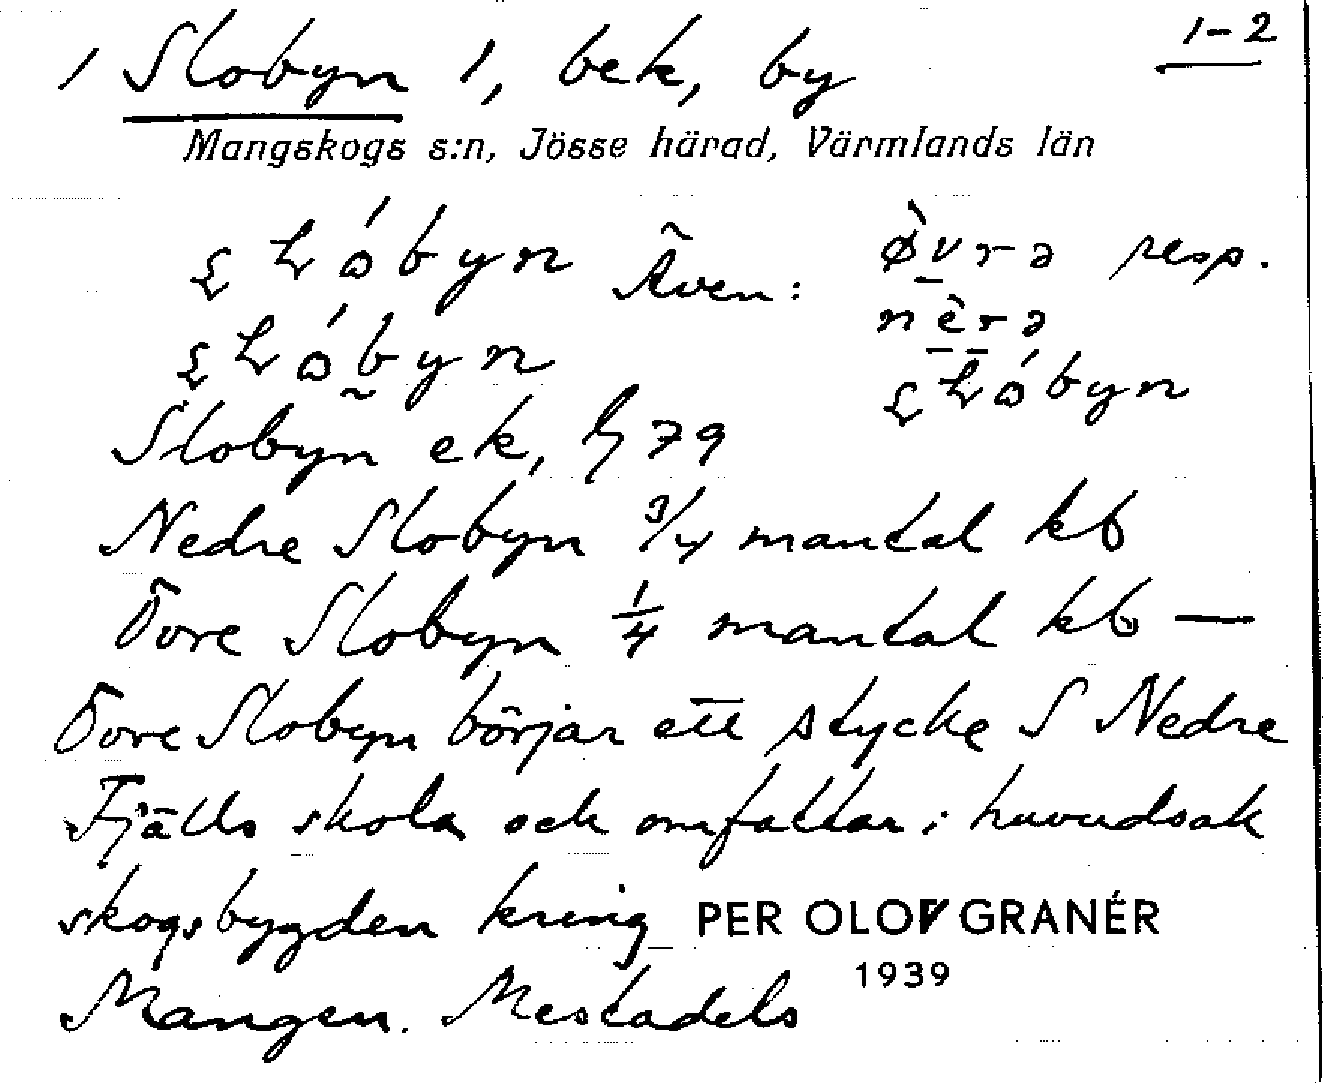 1-2
1 Slobyn 1, bek, by
Mangskogs s:n, Jösse härad, Värmlands län
Även: resp.
Slobyn ek, G 79
Nedre Slobyn 3/4 mantal kb
Övre Slobyn 1/4 mantal kb —
Övre Slobyn börjar ett stycke S Nedre
Fjälls skola och omfattar i huvudsak
skogsbygden kring
Mangen. Mestadels
PER OLOV GRANÉR
1939